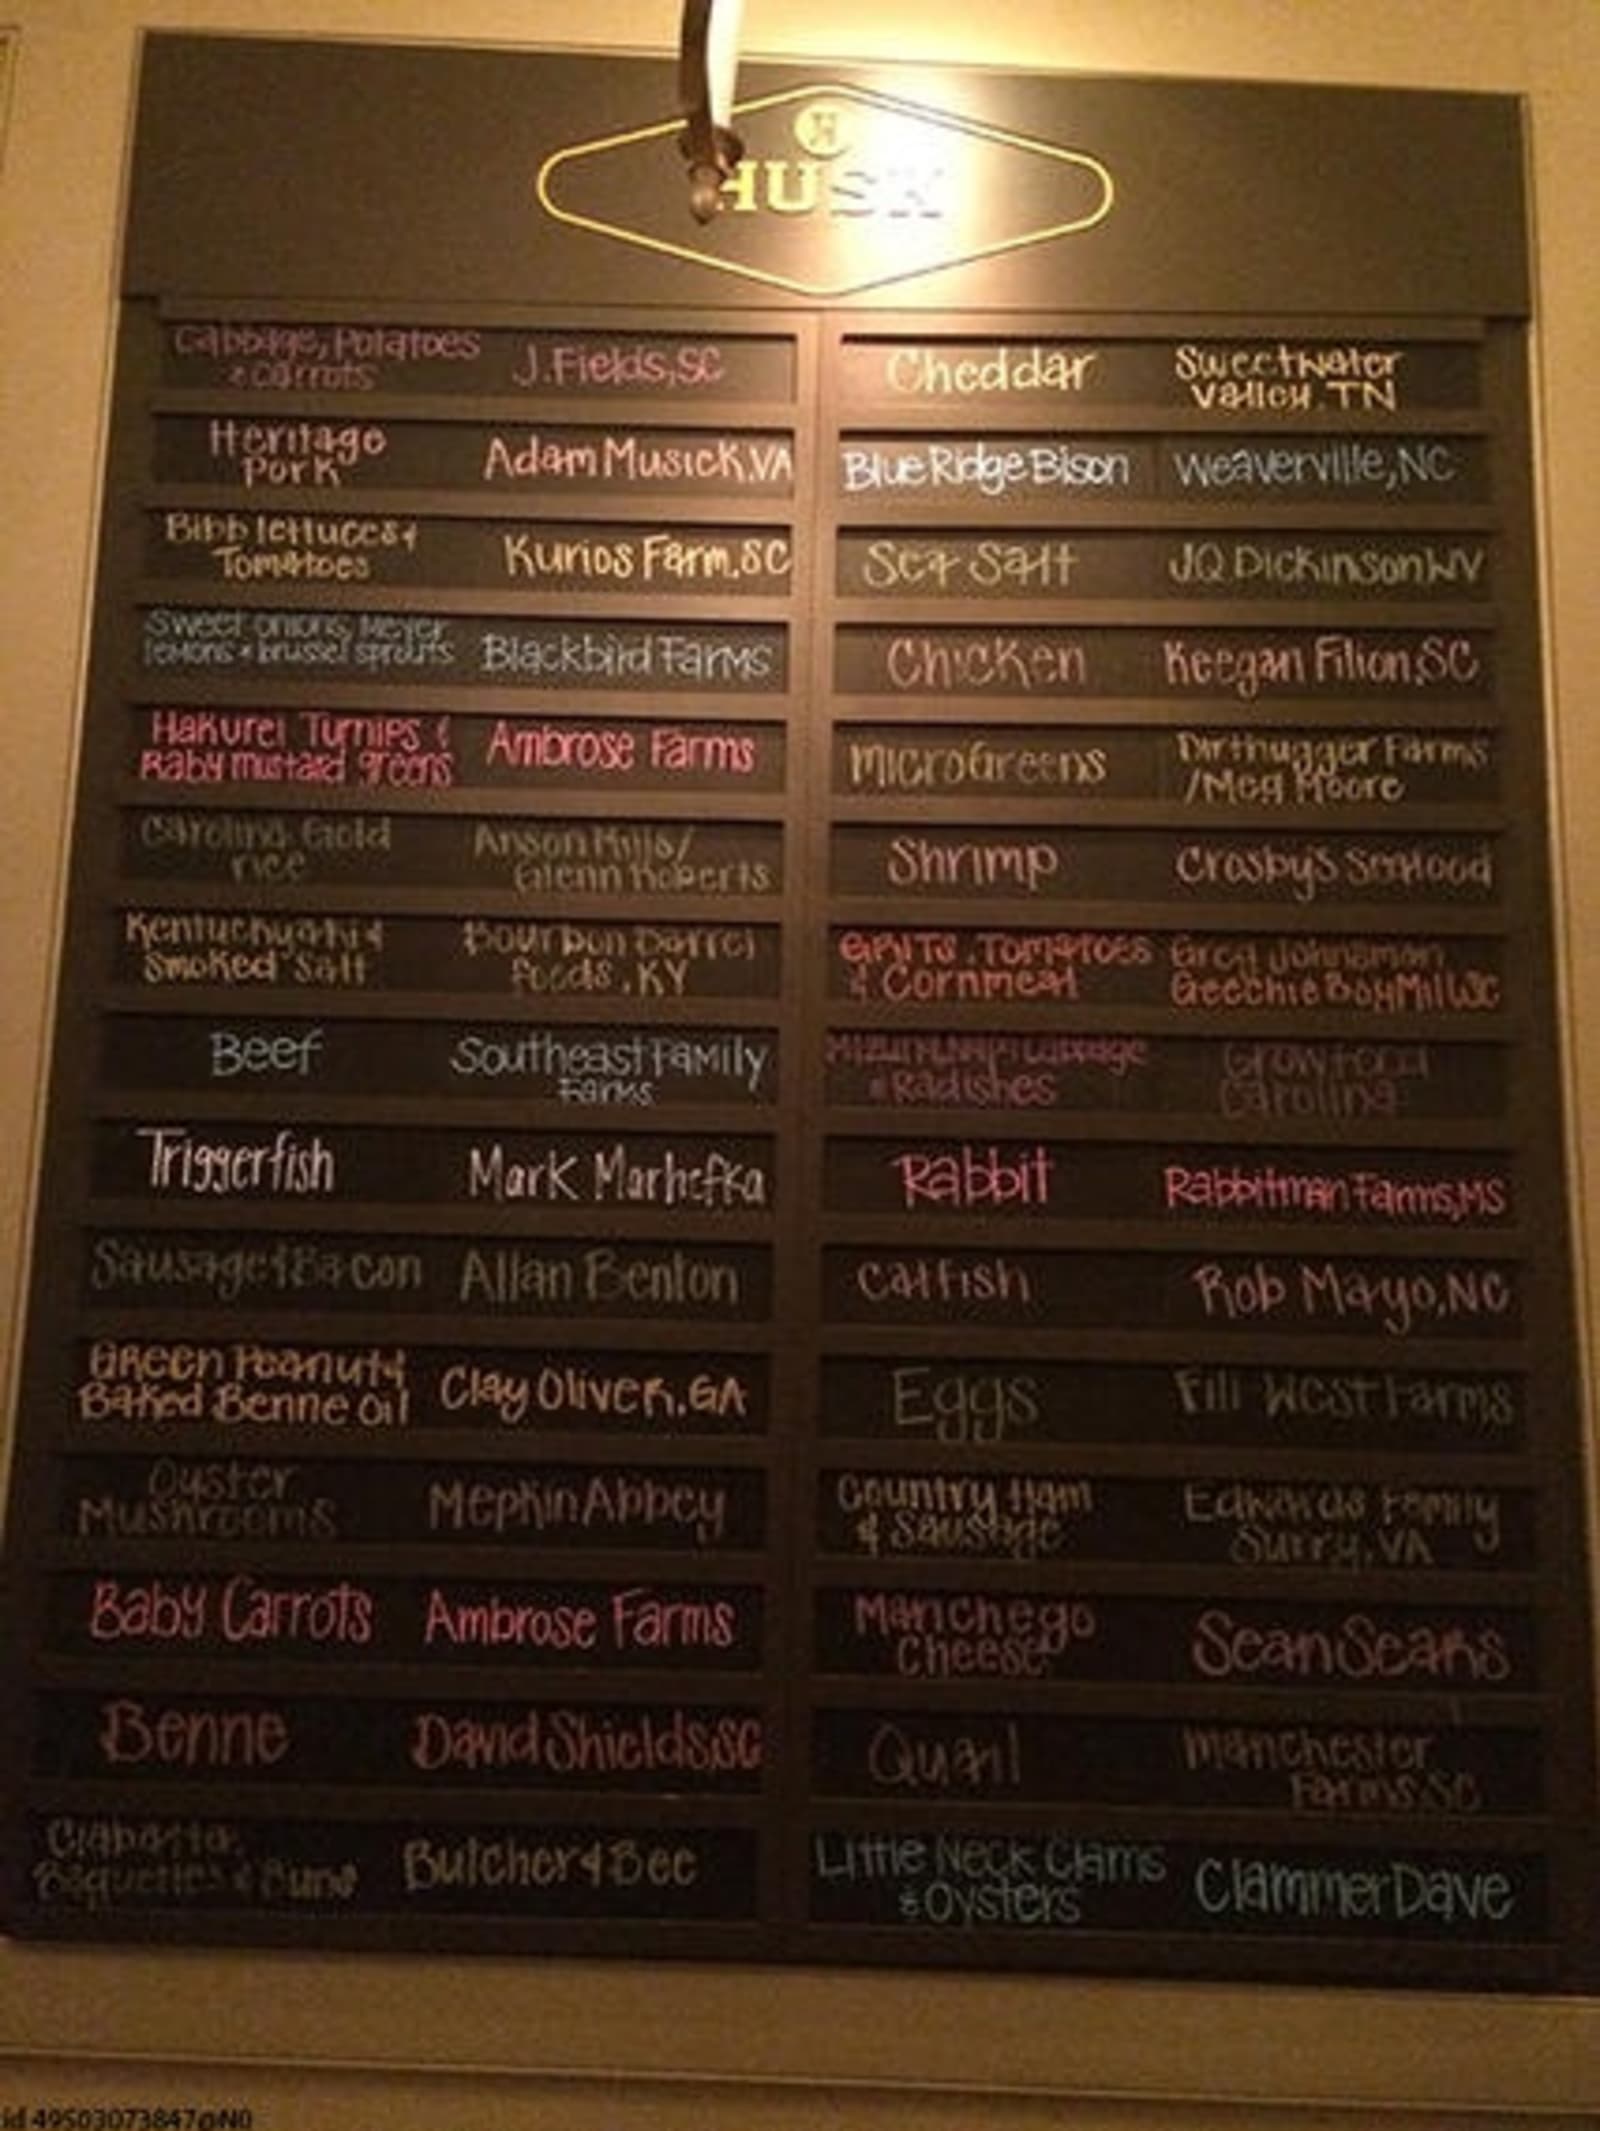 H
HUSK
Cabbage, Potatoes
& Carrots
J. Fields, SC
Heritage
Pork
Adam Musick, VA
Bibb lettuces &
Tomatoes
Kurios Farm, SC
Sweet onions, Meyer
lemons & brussel sprouts
Blackbird Farms
Hakurei Turnips &
Baby mustard greens
Ambrose Farms
Carolina Gold
rice
Anson Mills/
Glenn Roberts
Kentuckyaki &
Smoked Salt
Bourbon Barrel
Foods, KY
Beef
Southeast Family
Farms
Triggerfish
Mark Marhefka
Sausage & Bacon
Allan Benton
Green Peanut &
Baked Benne Oil
Clay Oliver, GA
Oyster
Mushrooms
Mepkin Abbey
Baby Carrots
Ambrose Farms
Benne
David Shields, SC
Ciabatta,
Baguettes & Buns
Butcher & Bee
Cheddar
Sweetwater
Valley, TN
Blue Ridge Bison
Weaverville, NC
Sea Salt
J.Q. Dickinson WV
Chicken
Keegan Filion, SC
MicroGreens
Dirthugger Farms
/Meg Moore
Shrimp
Crosby's Seafood
GRITS, Tomatoes
& Cornmeal
Greg Johnsman
Geechie Boy Mill, SC
Cabbage
& Radishes
GrowFood
Carolina
Rabbit
Rabbitman Farms, MS
Catfish
Rob Mayo, NC
Eggs
Fili West Farms
Country Ham
& Sausage
Edwards Family
Surry, VA
Manchego
Cheese
Sean Sears
Quail
Manchester
Farms, SC
Little Neck Clams
& Oysters
Clammer Dave
id 49503073847@N0